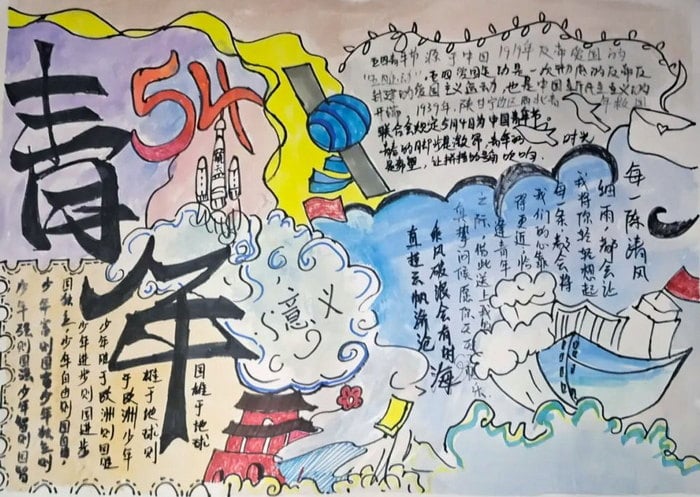 青年
54
五四青年节源于中国1919年反帝爱国的
"五四运动"，五四爱国运动是一次彻底的反帝反
封建的爱国主义运动，也是中国新民主主义革命的
开端 1939年，陕甘宁边区西北青年救国
联合会规定5月4日为中国青年节。
意义
每一阵清风
细雨，都会让
我将你轻轻想起
每一条都会将
我们的心靠
得更近，临
逢青年
之际，借此送上我
真挚问候愿你天天快乐
乘风破浪会有时
直挂云帆济沧海
国雄于地球
雄于地球则
于欧洲少年
少年胜于欧洲则国胜
少年进步则国进步
国独立少年自由则国自由，
少年富则国富少年独立则
少年强则国强少年智则国智